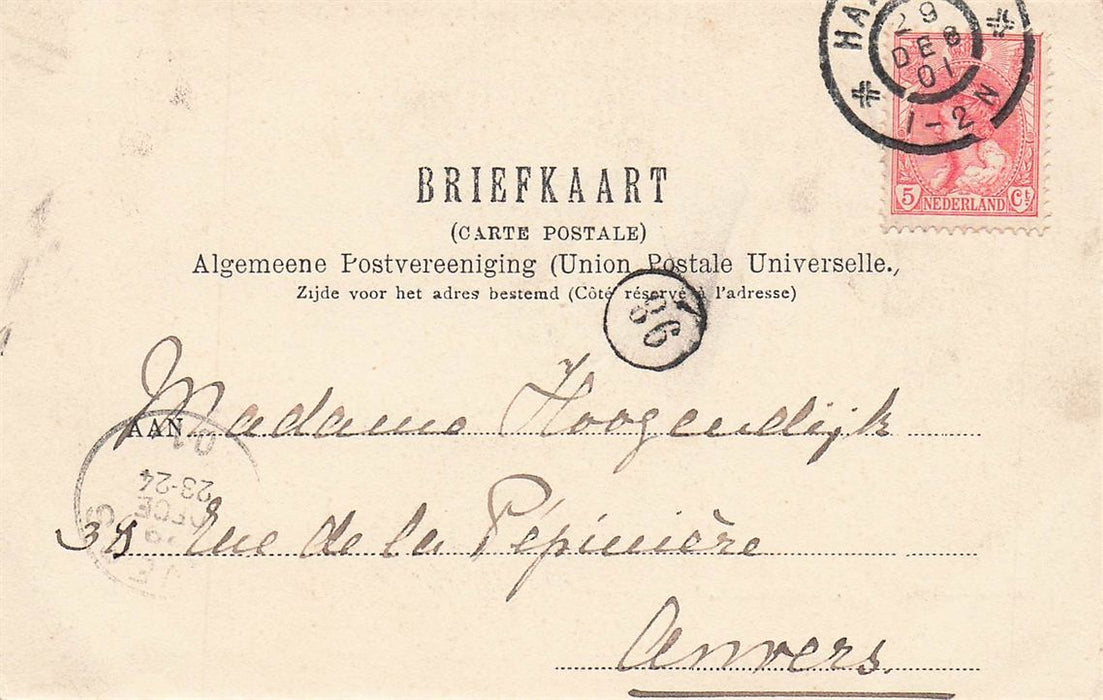 29
DE8
01
1-2 N
5 NEDERLAND Ct
BRIEFKAART
(CARTE POSTALE)
Algemeene Postvereeniging (Union Postale Universelle.,
Zijde voor het adres bestemd (Côté réservé à l'adresse)
86
AAN Madame Hoogendijk
01
23-24
38 Rue de la Pépinière
Anvers